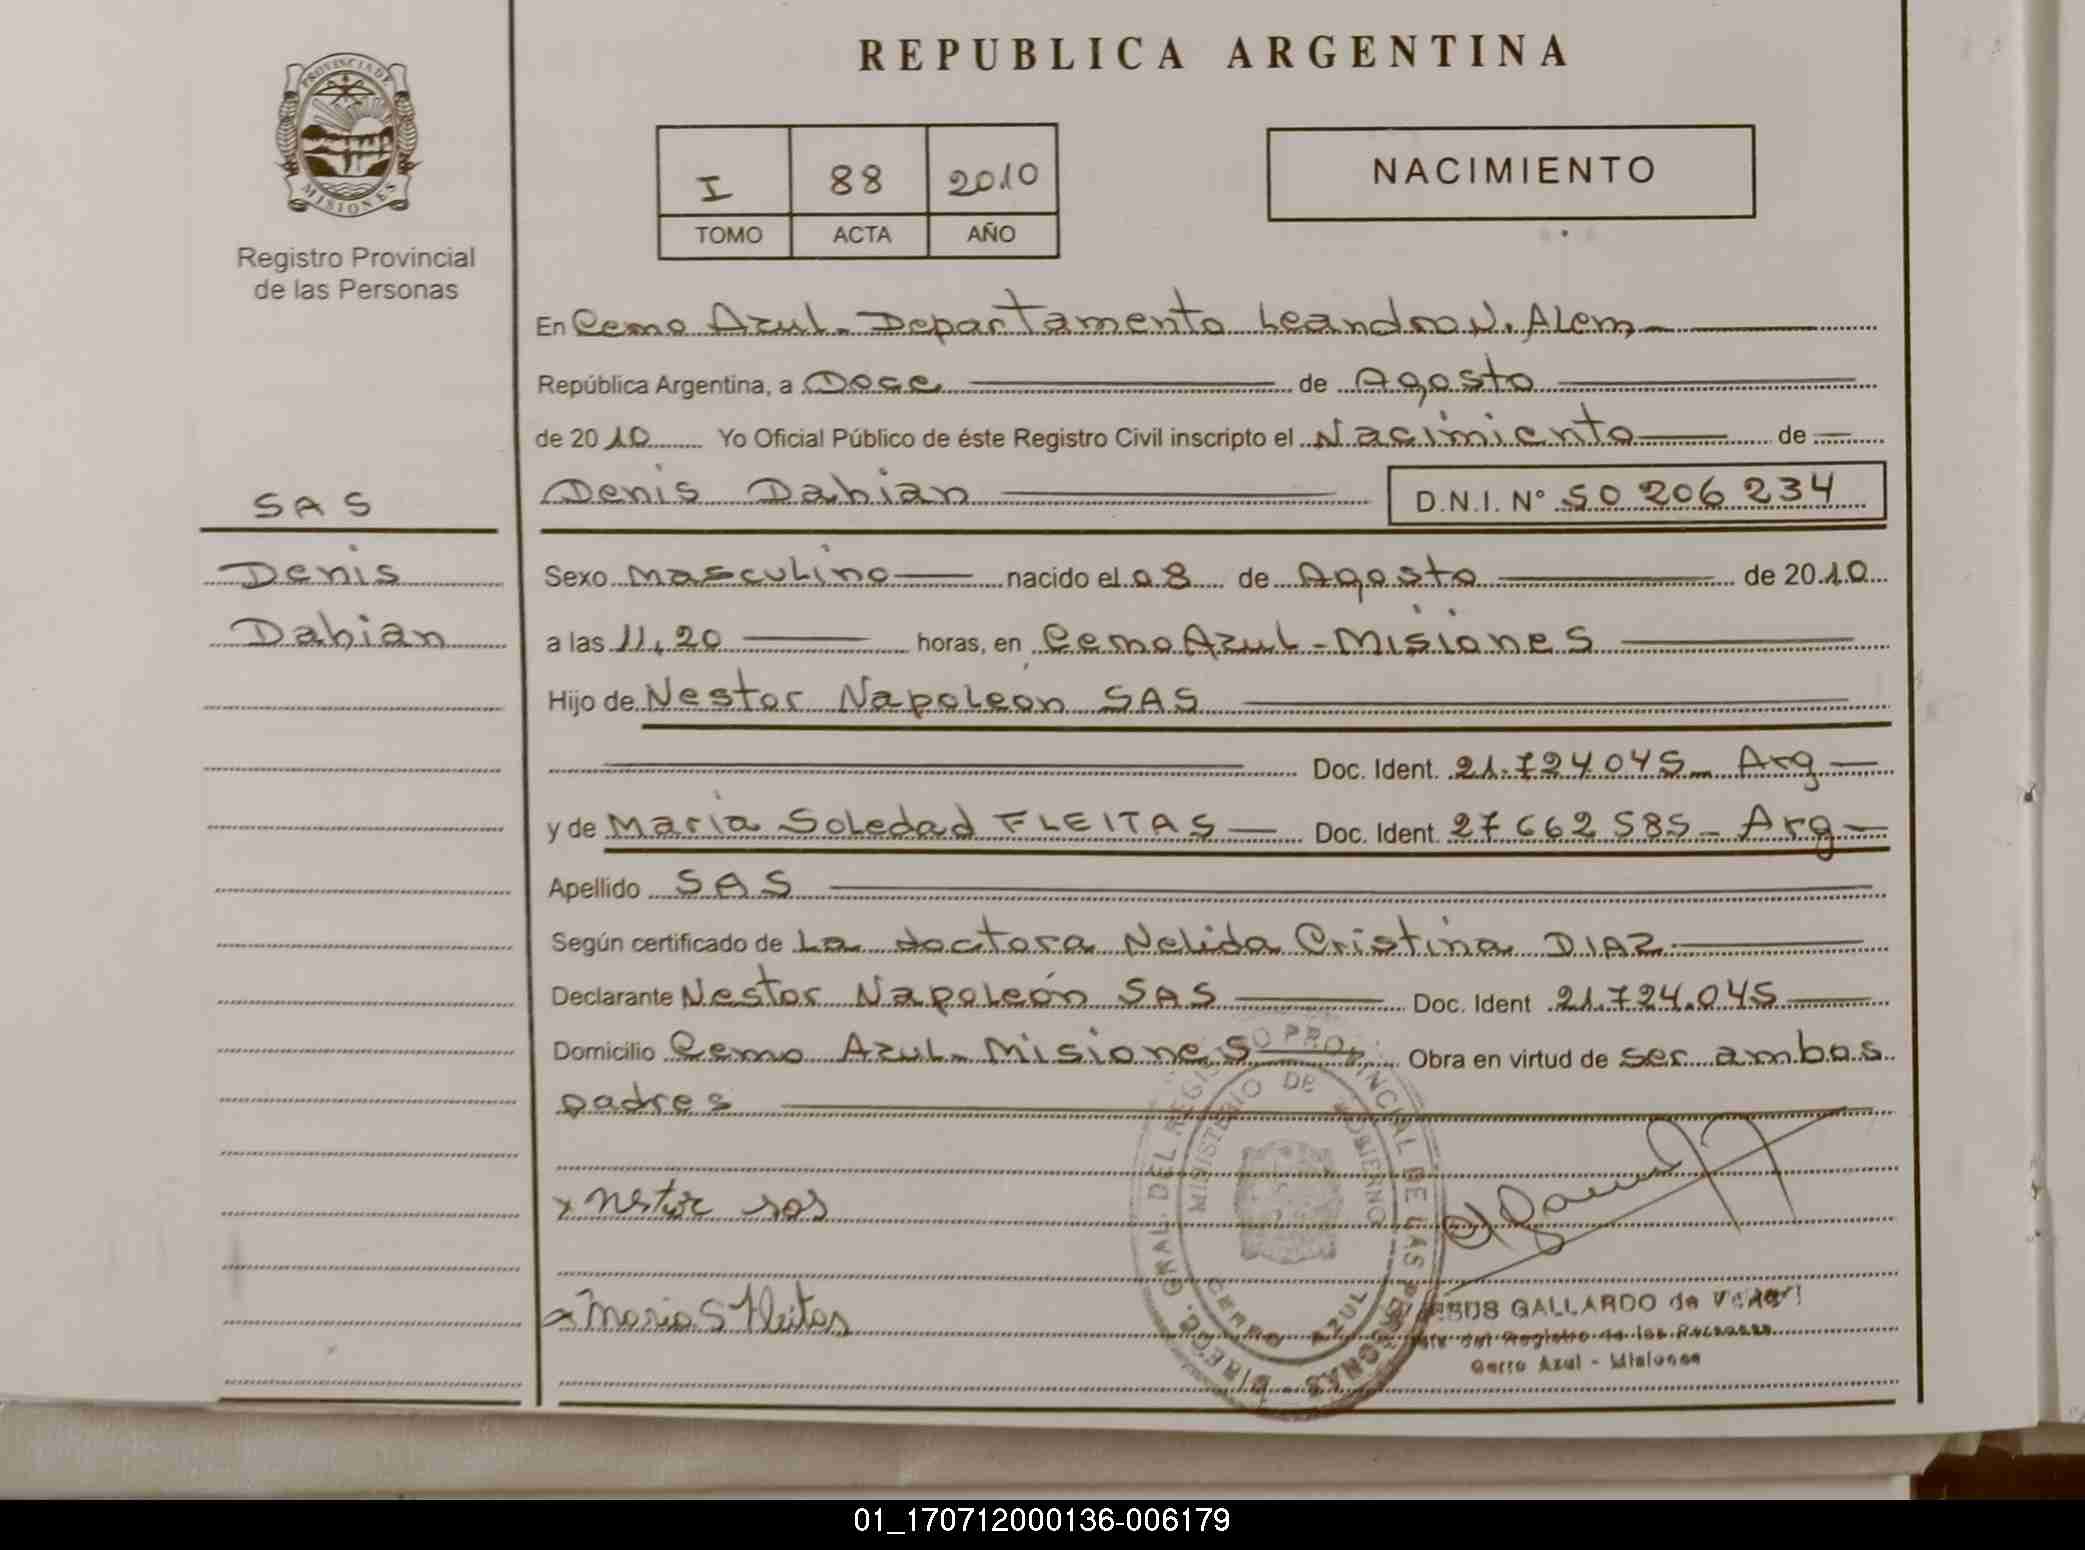 PROVINCIA DE
MISIONES
Registro Provincial
de las Personas
SAS
Denis
Dabian
REPUBLICA ARGENTINA
I 88 2010
TOMO ACTA AÑO
NACIMIENTO
En Cerro Azul - Departamento Leandro N. Alem
República Argentina, a Doce de Agosto
de 2010 Yo Oficial Público de éste Registro Civil inscripto el Nacimiento de
Denis Dabian D.N.I. Nº 50 206 234
Sexo masculino nacido el 08 de Agosto de 2010
a las 11,20 horas, en Cerro Azul - Misiones
Hijo de Nestor Napoleón SAS
Doc. Ident. 21.724045 - Arg
y de Maria Soledad FLEITAS Doc. Ident. 27662585 - Arg
Apellido SAS
Según certificado de La doctora Nelida Cristina DIAZ
Declarante Nestor Napoleón SAS Doc. Ident 21.724.045
Domicilio Cerro Azul - Misiones Obra en virtud de ser ambos
padres
x Nestor sas
x Maria S Fleitas
DIRECC. GRAL. DEL REGISTRO PROVINCIAL DE LAS PERSONAS
MINISTERIO DE GOBIERNO
CERRO AZUL
GALLARDO de
del Registro de las Personas
Cerro Azul - Misiones
01_170712000136-006179